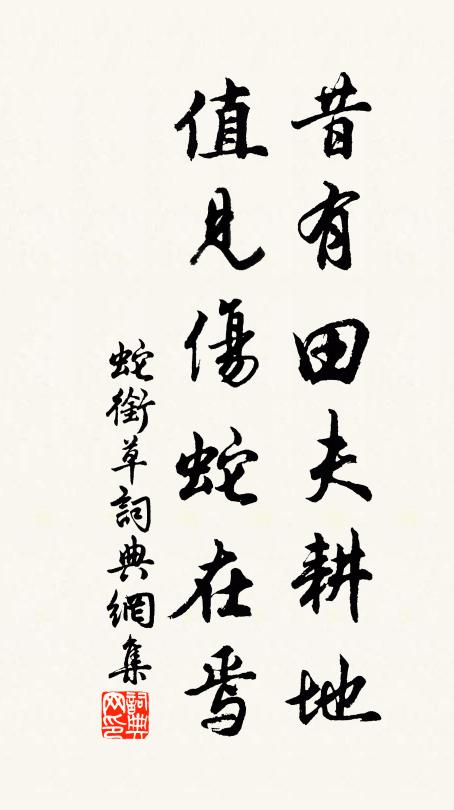 昔有田夫耕地
值見傷蛇在焉
蛇銜草詞典網集
詞典
网印